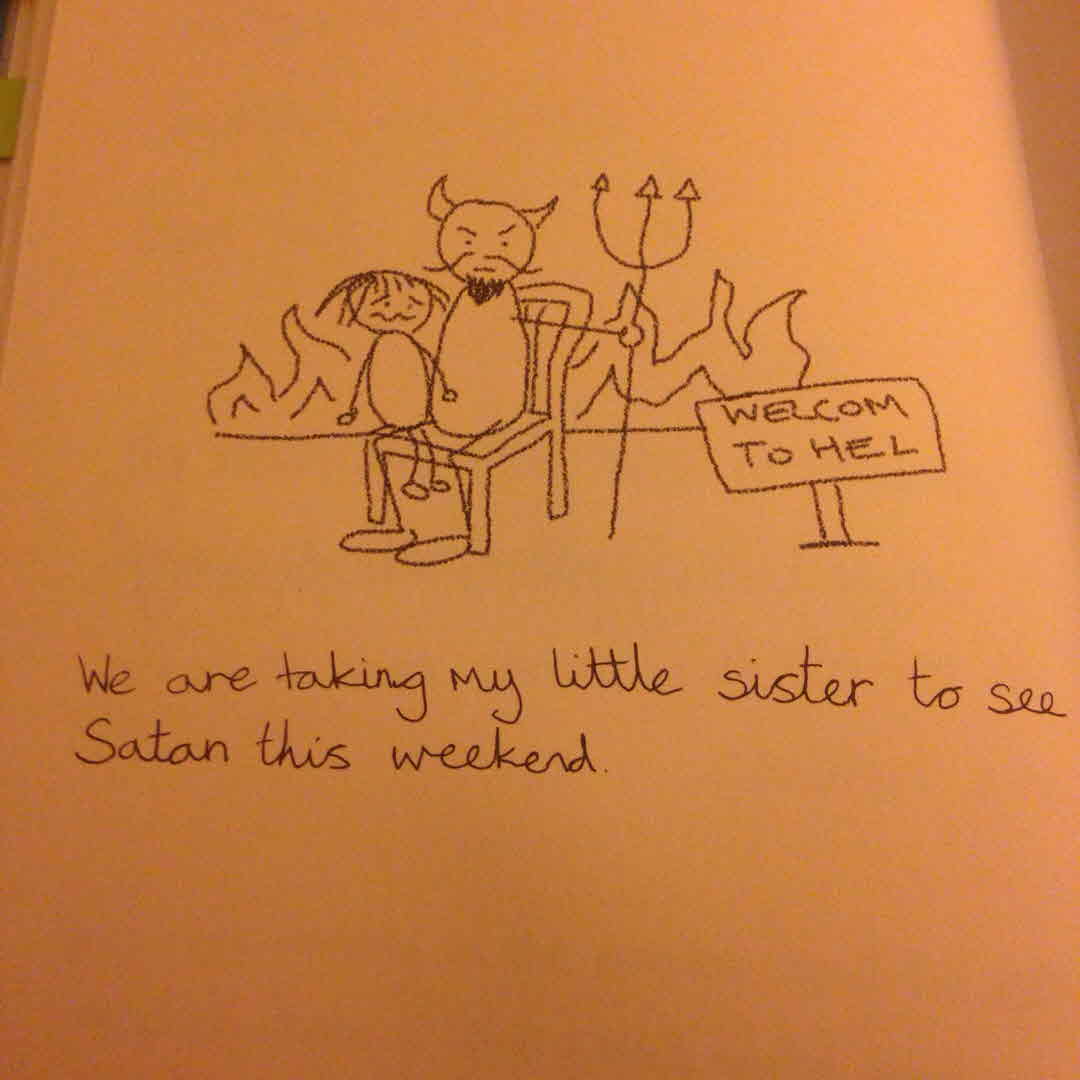 WELCOM
TO HEL
We are taking my little sister to see
Satan this weekend.